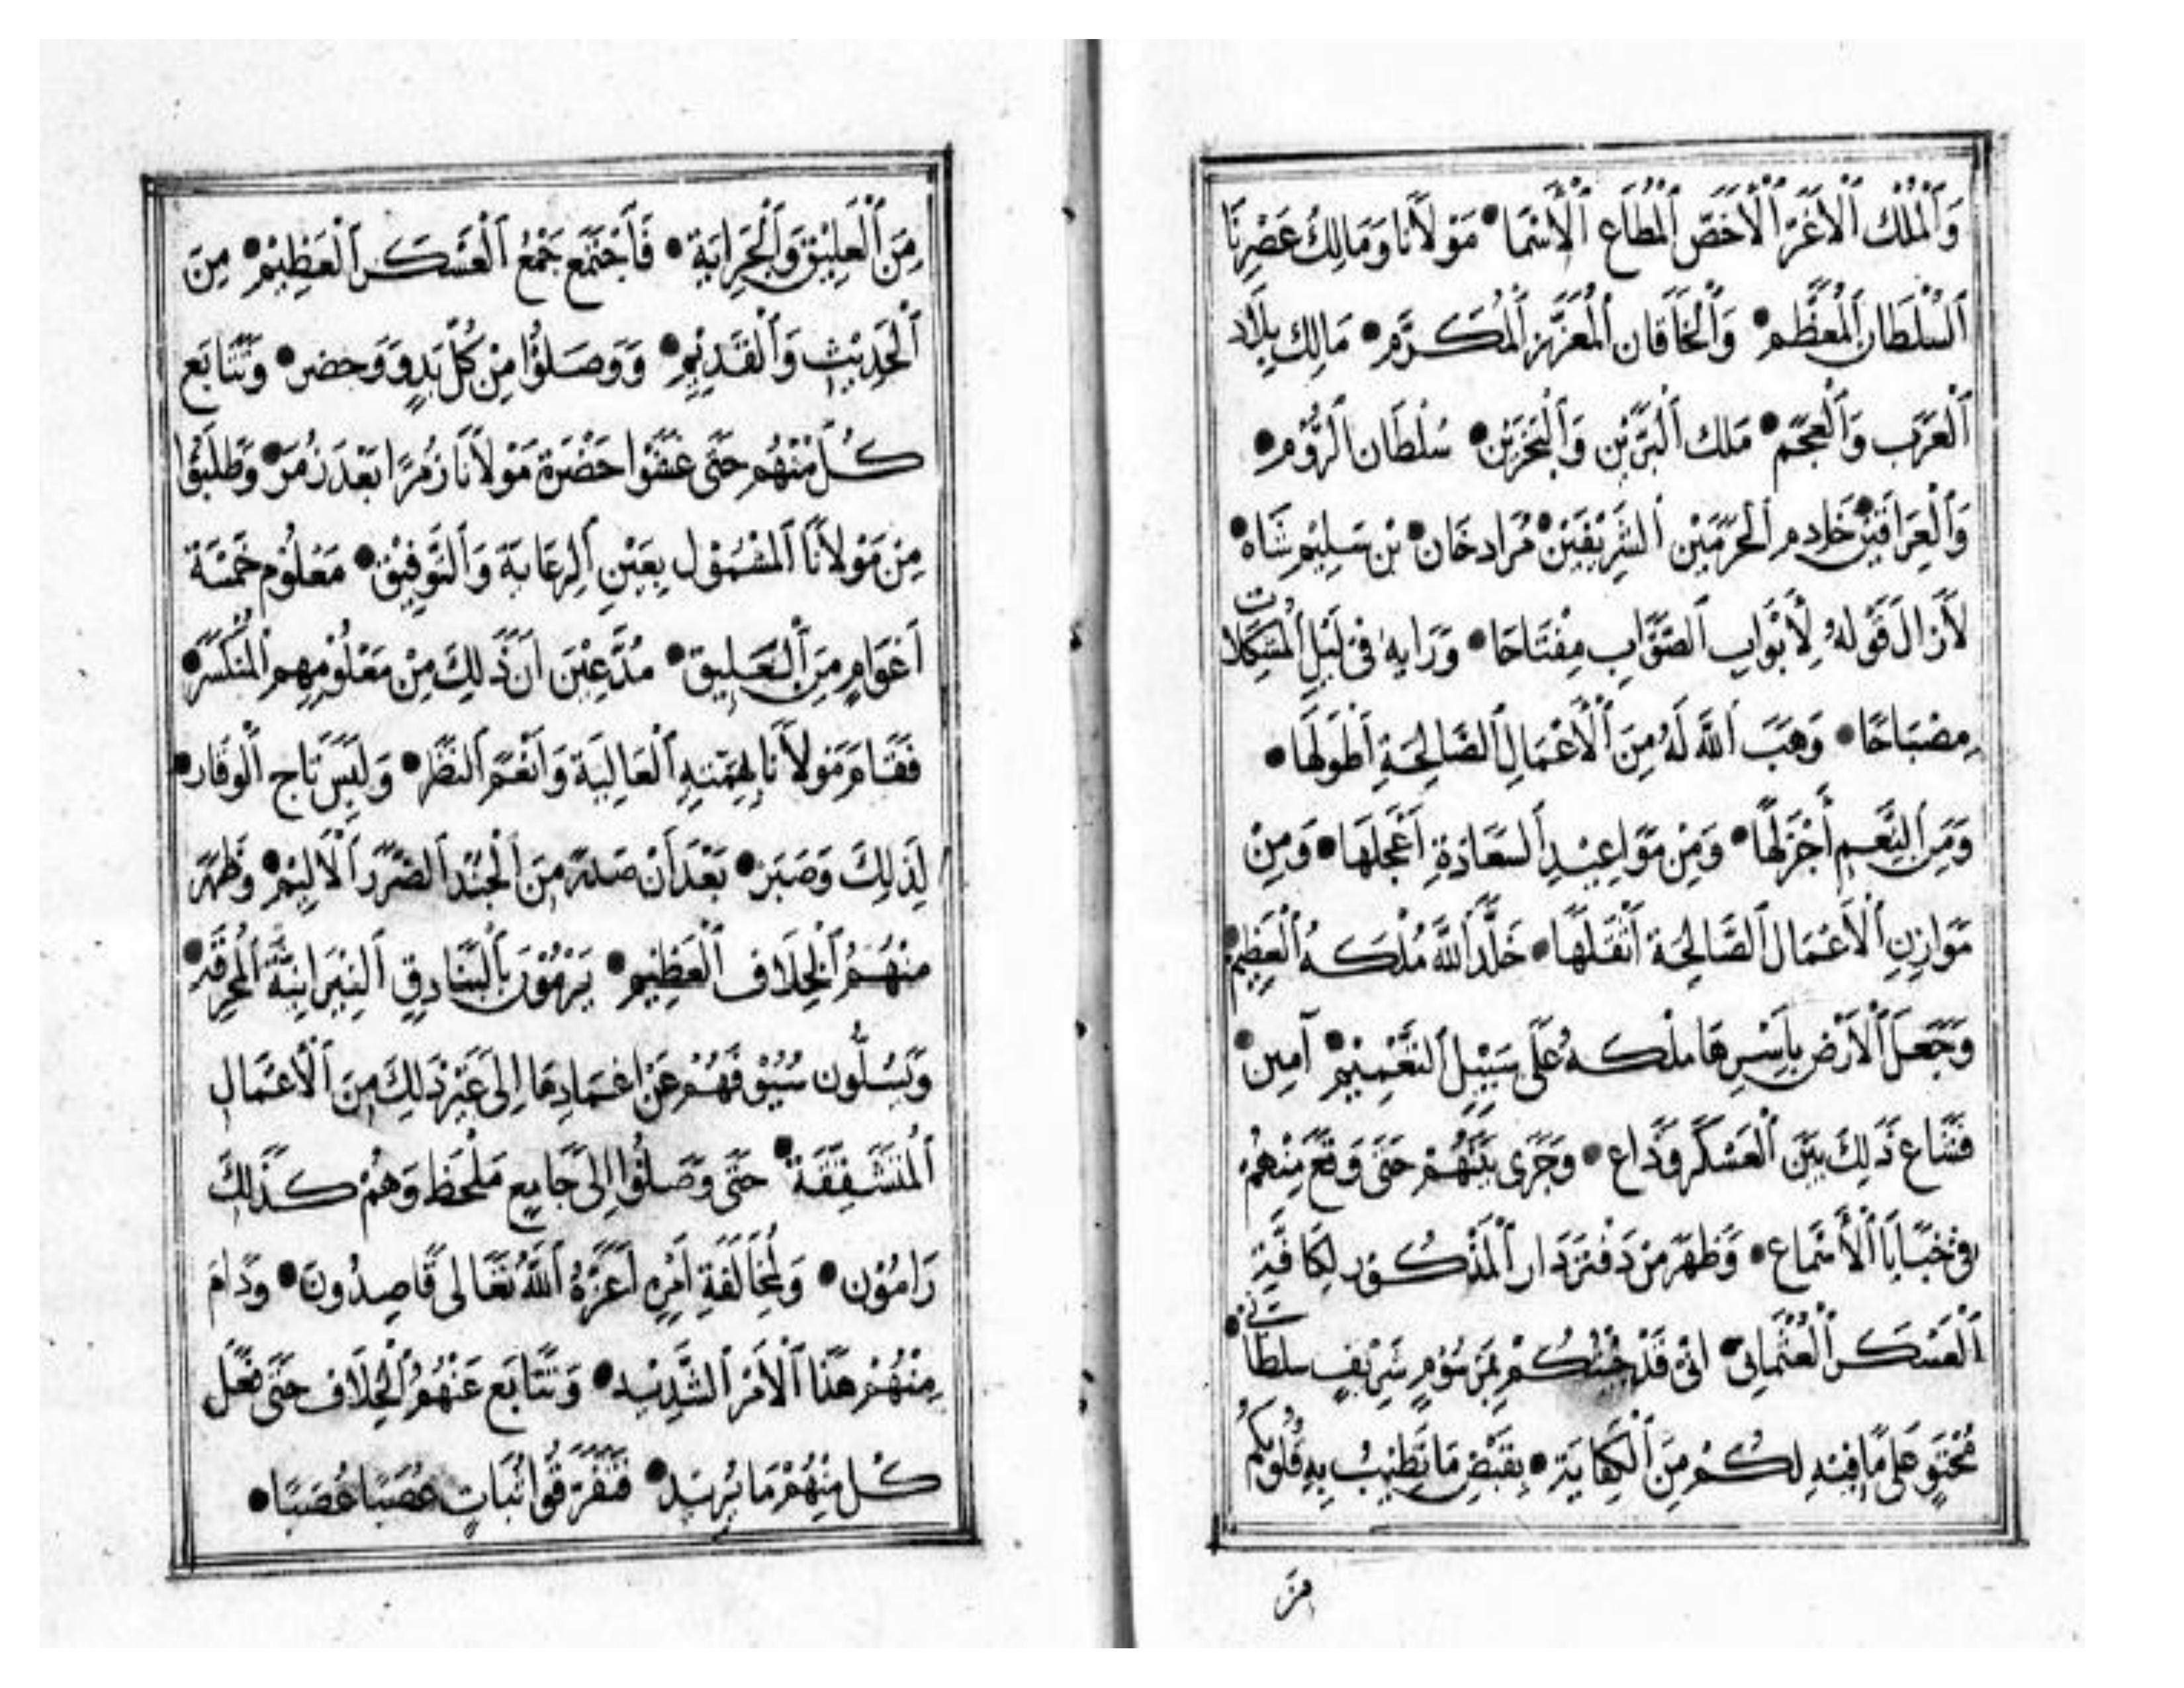 وَالْمَلِكِ الْأَغَرِّ الْأَخَصِّ الْمُطَاعِ الْأَسْمَا • مَوْلَانَا وَمَالِكُ عَصْرِنَا
السُّلْطَانِ الْمُعَظَّمِ • وَالْخَاقَانِ الْمُعَزَّزِ الْمُكَرَّمِ • مَالِكِ بِلَادِ
الْعَرَبِ وَالْعَجَمِ • مَلِكِ الْبَرَّيْنِ وَالْبَحْرَيْنِ • سُلْطَانِ الرُّوْمِ •
وَالْعِرَاقَيْنِ • خَادِمِ الْحَرَمَيْنِ الشَّرِيْفَيْنِ • مُرَاد خَان • بْنِ سَلِيْم شَاه •
لَا زَالَ قَوْلُهُ لِأَبْوَابِ الصَّوَابِ مِفْتَاحًا • وَرَايه فِى لَيْلِ الْمُشْكِلَات
مِصْبَاحًا • وَهَبَ اللَّهُ لَهُ مِنَ الْأَعْمَالِ الصَّالِحَةِ أَطْوَلَهَا •
وَمِنَ النِّعَمِ أَجْزَلَهَا • وَمِنْ مَوَاعِيْدِ السَّعَادَةِ أَعْجَلَهَا • وَمِنْ
مَوَازِيْنِ الْأَعْمَالِ الصَّالِحَةِ أَثْقَلَهَا • خَلَّدَ اللَّهُ مُلْكَهُ الْعَظِيْم •
وَجَعَلَ الْأَرْضَ بِأَسْرِهَا مُلْكَهُ عَلَى سَبِيْلِ التَّعْمِيْمِ • آمِيْن •
فَشَاعَ ذَلِكَ بَيْنَ الْعَسْكَرِ وَذَاع • وَجَرَى بَيْنَهُمْ حَتَّى وَقَعَ مِنْهُمْ
فِى خَبَايَا الْأَسْمَاع • وَظَهَرَ مِنْ دَفْتَرْدَار الْمَذْكُوْر لِكَافَّةِ
الْعَسْكَر الْعُثْمَانِى • اِنّى قَدْ جِئْتُكُمْ بِمَرْسُوْمٍ شَرِيْفٍ سُلْطَانِى •
مُحْتَوٍ عَلَى مَا فِيْهِ لَكُمْ مِنَ الْكِفَايَة • بِقَبْضِ مَا تَطِيْبُ بِهِ قُلُوبُكُمْ
مِنَ
مِنَ الْعَلِيْقِ وَالْجَرَايَةِ • فَاجْتَمَع جَمْعُ الْعَسْكَر الْعَظِيْم • مِنَ
الْحَدِيْثِ وَالْقَدِيْمِ • وَوَصَلُوْا مِنْ كُلِّ بَدْوٍ وَحَضَر • وَتَتَابَع
كُلٌّ مِنْهُمْ حَتَّى حَضْرَةَ مَوْلَانَا زُمَرًا بَعْدَ زُمَرَ • وَطَلَبُوْا
مِنْ مَوْلَانَا الْمَشْمُوْل بِعَيْنِ الرِّعَايَةِ وَالتَّوْفِيْق • مَعْلُوْم خَمْسَة
أَعْوَامٍ مِنَ الْعَلِيْق • مُدَّعِيْنَ أَنَّ ذَلِكَ مِنْ مَعْلُوْمِهِم الْمُنْكَسَر •
فَقَامَ مَوْلَانَا بِهِمَّتِهِ الْعَالِيَة وَأَنْعَمَ النَّظَر • وَلَبِسَ تَاجَ الْوَقَار •
لِذَلِكَ وَصَبَر • بَعْدَ أَنْ صَدَرَ مِنَ الْجُنْد الضَّرَر الْأَلِيْم • وَظَهَرَ
مِنْهُمُ الْخِلَاف الْعَظِيْم • يَرْمُوْنَ بِالْبَنَادِقِ النِّيْرَانِيَّة الْمُحْرِقَة •
وَيَسُلُّونَ سُيُوْفَهُمْ عَنْ اغمَادِهَا إِلَى غَيْرِ ذَلِكَ مِنَ الْأَعْمَالِ
• حَتَّى وَصَلُوْا إِلَى جَامِعِ مَلْحَظ وَهُمْ كَذَلِكَ
رَامُوْن • وَلِمُخَالَفَةِ أَمْرِهِ أَعَزَّهُ اللَّهُ تَعَالَى قَاصِدُونَ • وَدَامَ
مِنْهُمْ هَذَا الْأَمْر الشَّدِيْد • وَتَتَابَع عَنْهُمُ الْخِلَاف حَتَّى فَعَلَ
كُلٌّ مِنْهُمْ مَا يُرِيْد • فَتَفَرَّقُوا ثُبَاتٍ عُصَبًا عُصَبًا •